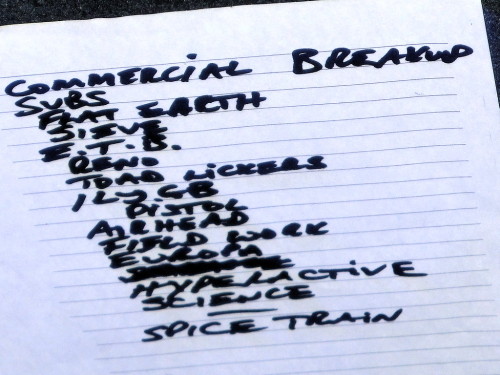 COMMERCIAL BREAKUP
SUBS
FLAT EARTH
SIEVE
E.T.B.
RENO
TOAD LICKERS
ILU GB
PISTOL
AIRHEAD
FIELD WORK
EUROPA
HYPERACTIVE
SCIENCE
SPICE TRAIN